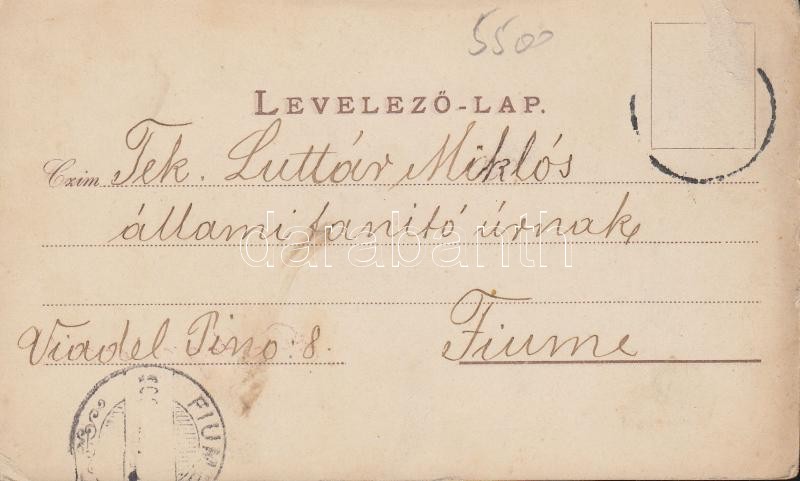 5500
LEVELEZŐ-LAP.
Czim Tek. Luttár Miklós
állami tanitó úrnak
darabanth
Via del Pino: 8. Fiume
FIUM